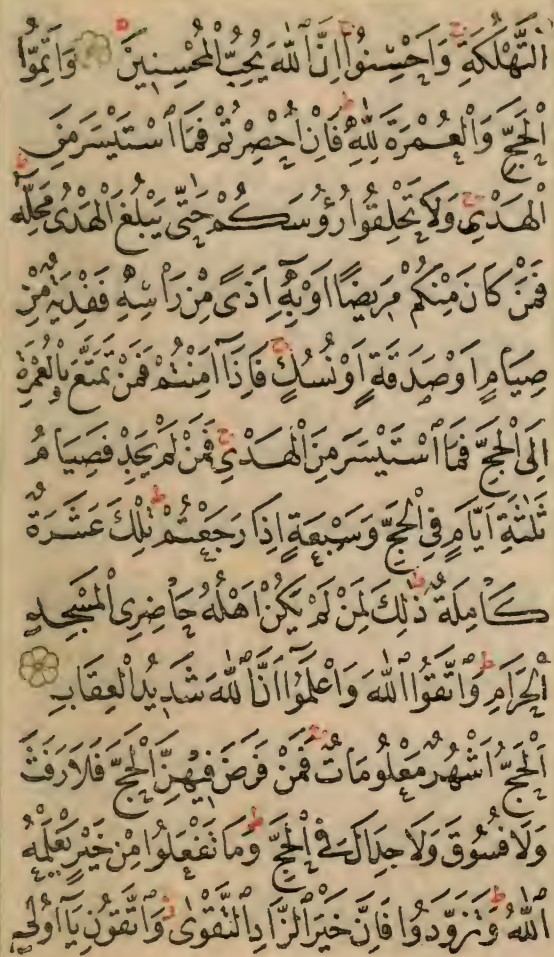 اَلتَّهْلُكَةِ ۛ وَاَحْسِنُوا ۛ اِنَّ اللّٰهَ يُحِبُّ الْمُحْسِنِينَ وَاَتِمُّوا
الْحَجَّ وَالْعُمْرَةَ لِلّٰهِ ط فَاِنْ اُحْصِرْتُمْ فَمَا اسْتَيْسَرَ مِنَ
الْهَدْىِ ج وَلَا تَحْلِقُوا رُؤُسَكُمْ حَتّٰى يَبْلُغَ الْهَدْىُ مَحِلَّهُ ط
فَمَنْ كَانَ مِنْكُمْ مَرِيضًا اَوْ بِهٓ اَذًى مِنْ رَاْسِهِ فَفِدْيَةٌ مِنْ
صِيَامٍ اَوْ صَدَقَةٍ اَوْ نُسُكٍ ج فَاِذَآ اَمِنْتُمْ فَمَنْ تَمَتَّعَ بِالْعُمْرَةِ
اِلَى الْحَجِّ فَمَا اسْتَيْسَرَ مِنَ الْهَدْىِ ج فَمَنْ لَمْ يَجِدْ فَصِيَامُ
ثَلٰثَةِ اَيَّامٍ فِى الْحَجِّ وَسَبْعَةٍ اِذَا رَجَعْتُمْ ط تِلْكَ عَشَرَةٌ
كَامِلَةٌ ط ذٰلِكَ لِمَنْ لَمْ يَكُنْ اَهْلُهُ حَاضِرِى الْمَسْجِدِ
الْحَرَامِ ط وَاتَّقُوا اللّٰهَ وَاعْلَمُوٓا اَنَّ اللّٰهَ شَدِيدُ الْعِقَابِ
اَلْحَجُّ اَشْهُرٌ مَعْلُومَاتٌ ج فَمَنْ فَرَضَ فِيهِنَّ الْحَجَّ فَلَا رَفَثَ
وَلَا فُسُوقَ وَلَا جِدَالَ فِى الْحَجِّ ط وَمَا تَفْعَلُوا مِنْ خَيْرٍ يَعْلَمْهُ
اللّٰهُ ط وَتَزَوَّدُوا فَاِنَّ خَيْرَ الزَّادِ التَّقْوٰى ز وَاتَّقُونِ يَآ اُولِى